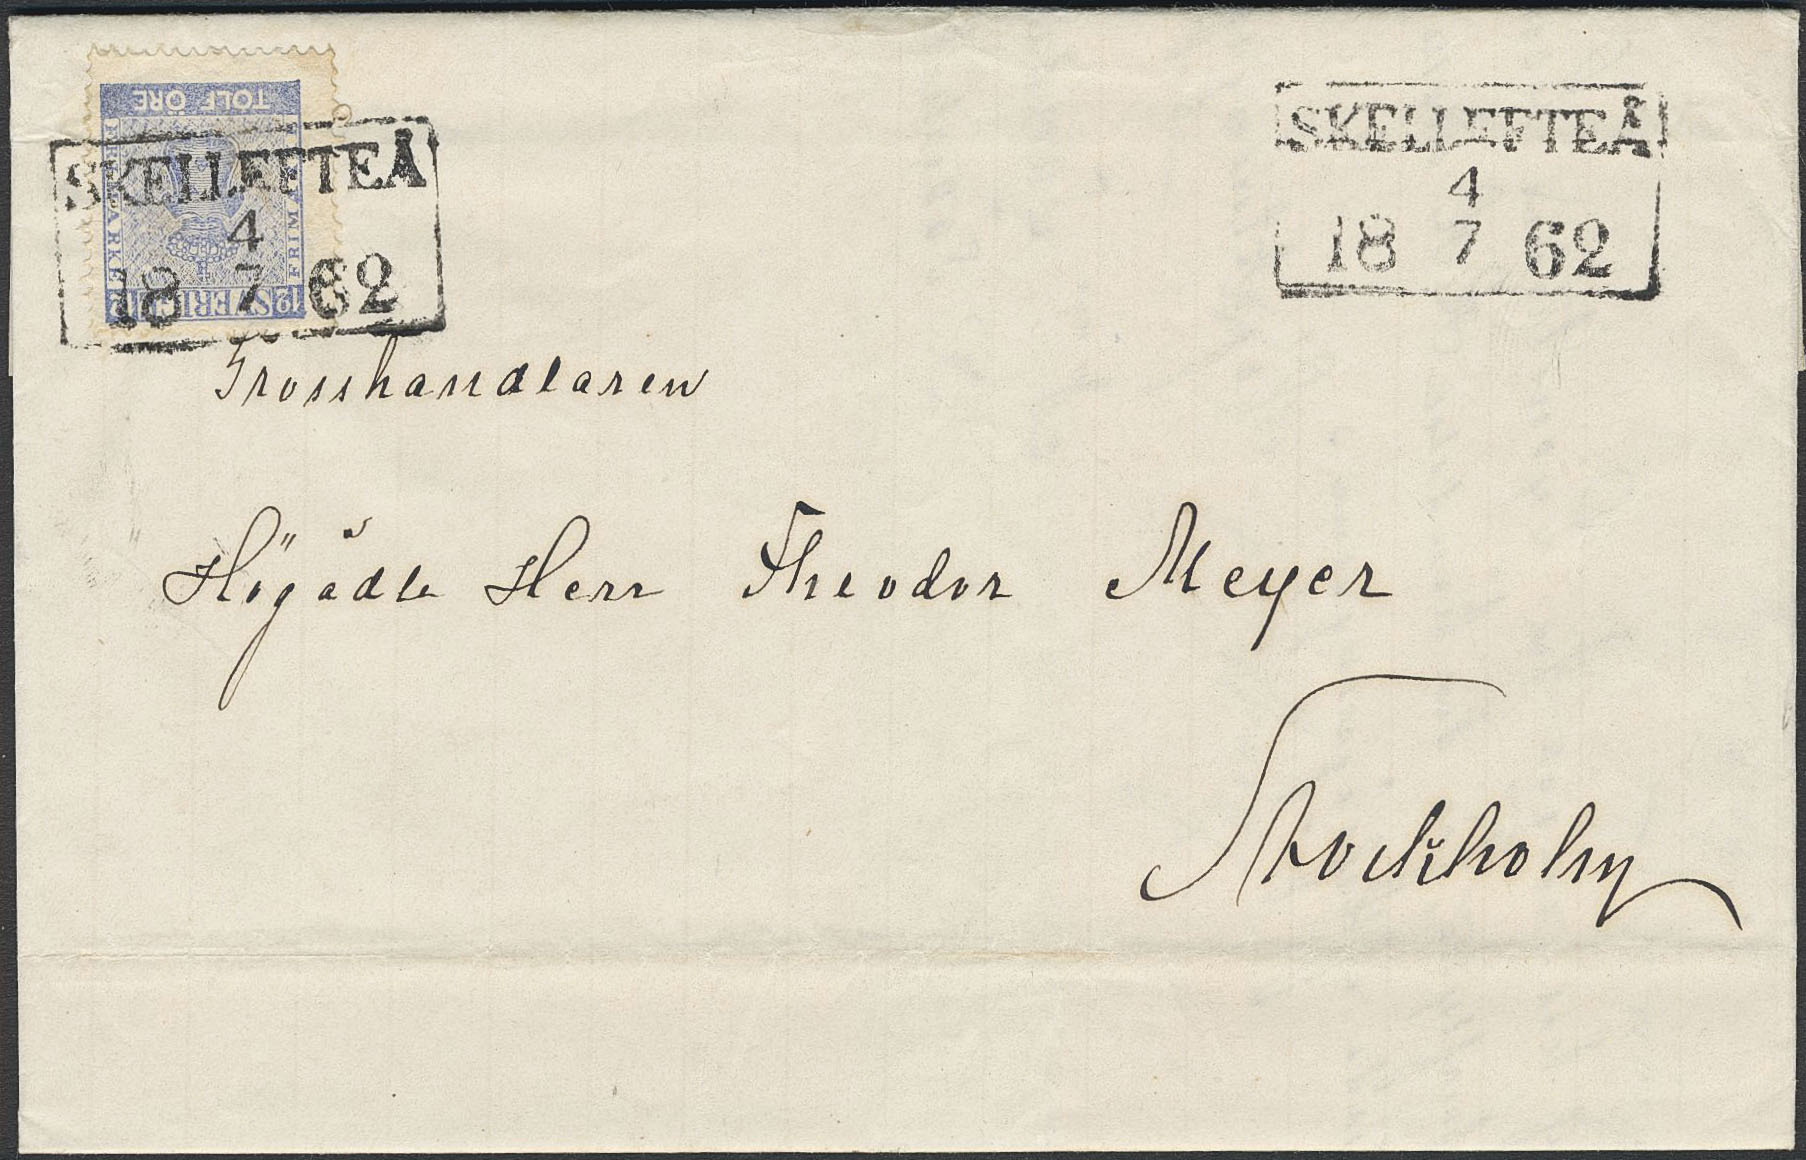 TOLF ÖRE
FRIMÄRKE FRIMÄRKE
12 SVERIGE 12
SKELLEFTEÅ
4
18 7 62
SKELLEFTEÅ
4
18 7 62
Grosshandlaren
Högädle Herr Theodor Meyer
Stockholm